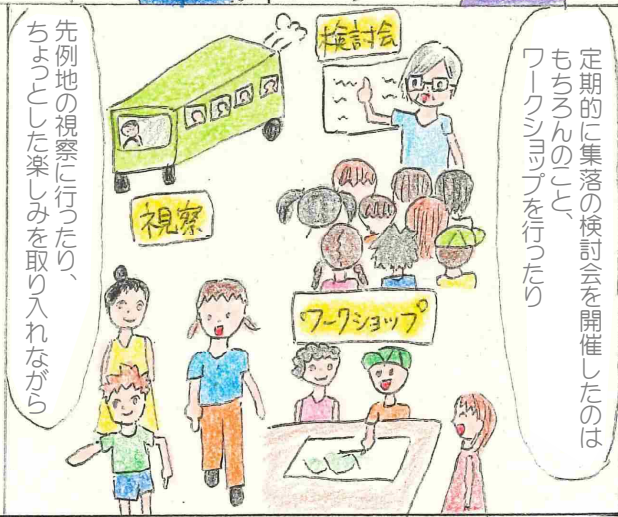 定期的に集落の検討会を開催したのは
もちろんのこと、
ワークショップを行ったり
検討会
視察
ワークショップ
先例地の視察に行ったり、
ちょっとした楽しみを取り入れながら